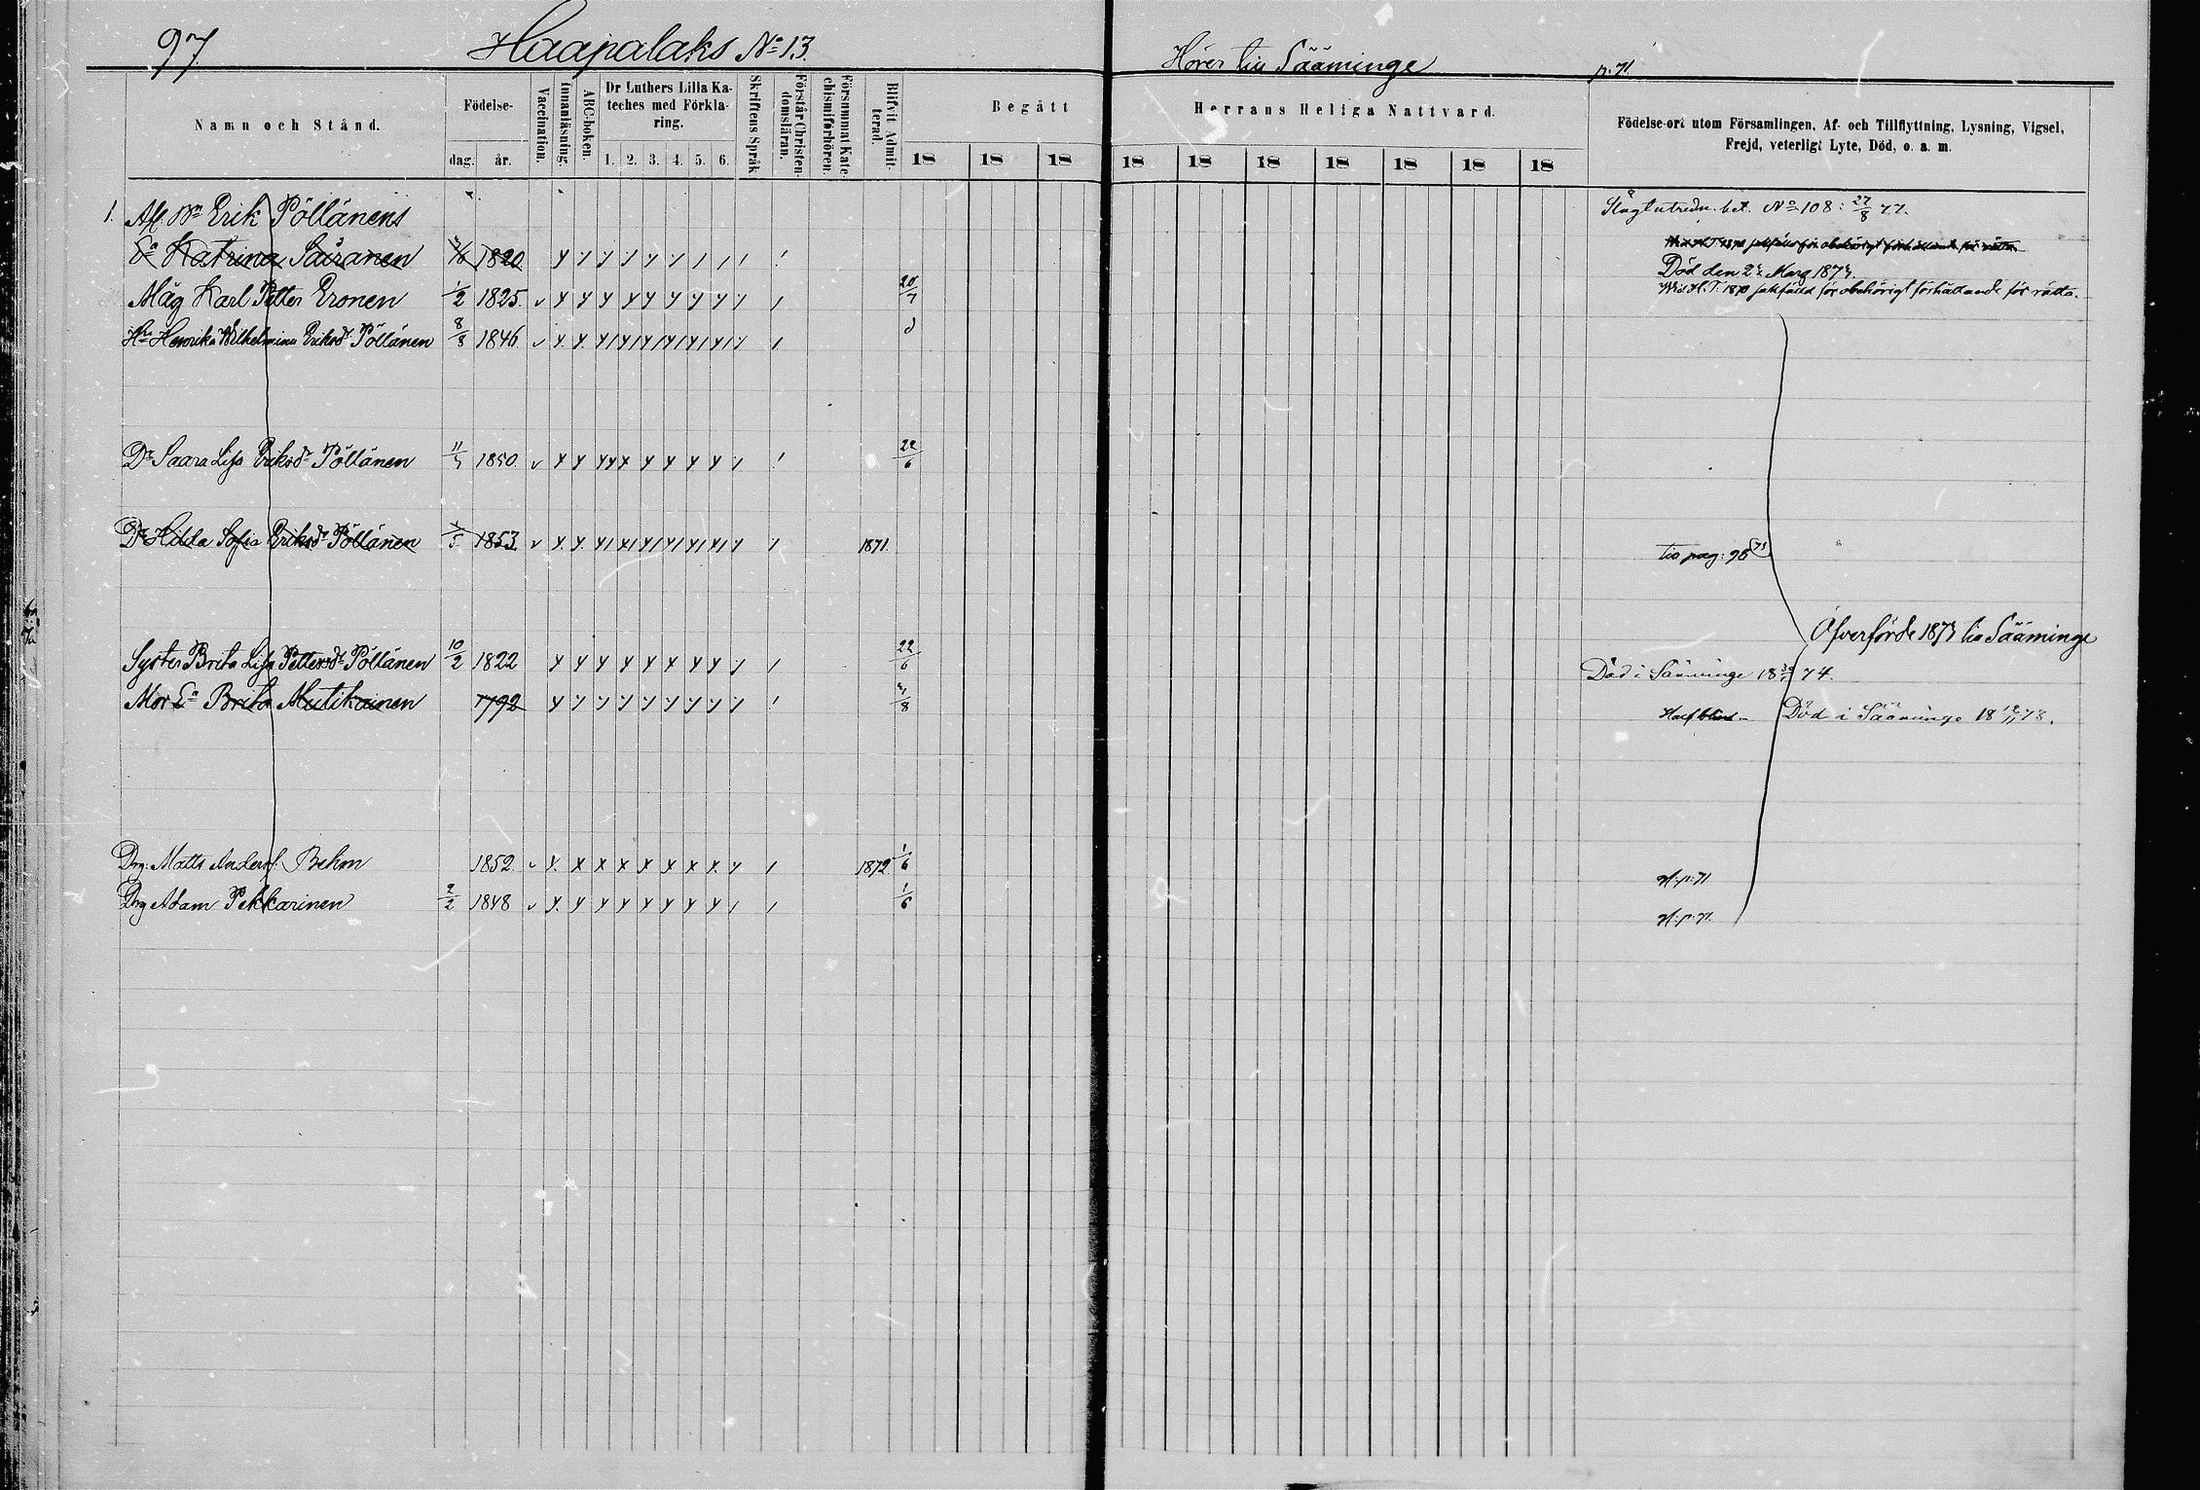 97. Haapalaks No 13. Hörer till Sääminge p. 71
Namn och Stånd.
Födelse-
dag. år.
Vaccination.
Innanläsning.
ABC-boken.
Dr Luthers Lilla Ka-
teches med Förkla-
ring.
1. 2. 3. 4. 5. 6.
Skriftens Språk
Förstår Christen-
domsläran.
Försummat Kate-
chismiförhören.
Blifvit Admit-
terad.
Begått Herrans Heliga Nattvard.
18 18 18 18 18 18 18 18 18 18
Födelse-ort utom Församlingen, Af- och Tillflyttning, Lysning, Vigsel,
Frejd, veterligt Lyte, Död, o. a. m.
1. Afl. Bn Erik Pöllänens Slägtutredn. bet. No 108: 27/8 77.
Ea Katrina Sairanen 1820
Död den 2 Mars 1873.
Måg Karl Petter Eronen 1/2 1825 20/7 Wid H.T. 1870 sakfälld för obehörigt förhållande för rätta.
Hu Henrika Wilhelmina Eriksdr Pöllänen 8/3 1846
Dr Saara Lisa Eriksdr Pöllänen 1850 22/6
Dr Hilda Sofia Eriksdr Pöllänen 1853 1871 till pag: 98
Öfverförde 1873 till Sääminge
Syster Brita Lisa Pettersdr Pöllänen 10/2 1822 22/6 Död i Sääminge 74.
Mor Ea Brita Mutikainen 1792 Half blind. Död i Sääminge 18 73.
Drg. Matts Andersf. Behm 1852 1872 1/6 H: p: 71
Drg Adam Pekkarinen 2/2 1848 1/6 H: p: 71.